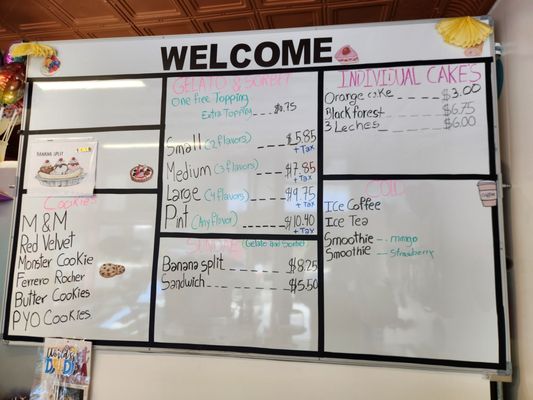 WELCOME
BANANA SPLIT
Cookies
M&M
Red Velvet
Monster Cookie
Ferrero Rocher
Butter Cookies
PYO Cookies
World's
DAD!
GELATO & SORBET
One Free Topping
Extra Topping ---- $0.75
Small (2 flavors) --- $5.85
+ Tax
Medium (3 flavors) $7.85
+ Tax
Large (4 flavors) --- $9.75
+ Tax
Pint (Any flavor) ---- $10.40
+ Tax
(Gelato and Sorbet)
Banana split ------- $8.25
Sandwich --------- $5.50
INDIVIDUAL CAKES
Orange cake ------ $3.00
Blackforest ------ $6.75
3 Leches ------ $6.00
COLD
Ice Coffee
Ice Tea
Smoothie -- mango
Smoothie -- strawberry